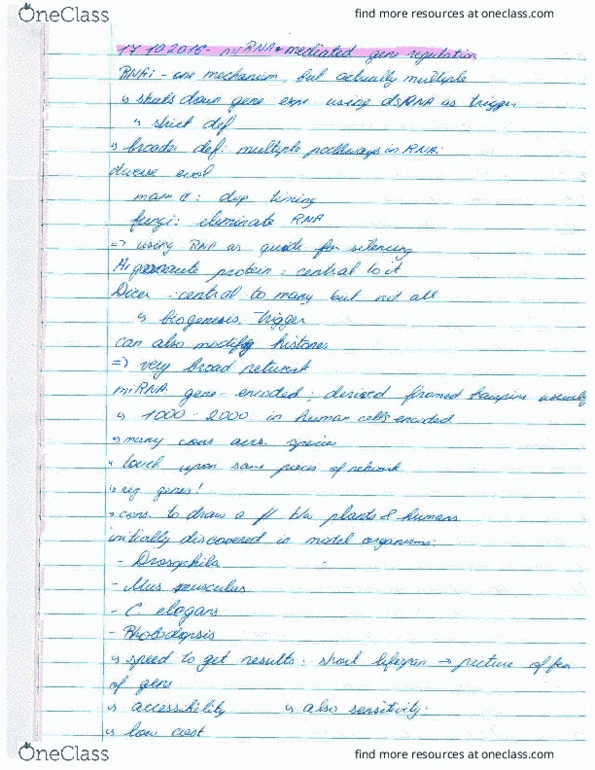 OneClass
find more resources at oneclass.com
17.10.2016 - miRNA mediated gene regulation
RNAi - one mechanism, but actually multiple
↳ shuts down gene expr using dsRNA as trigger
↳ strict def
↳ broader def: multiple pathways in RNAi
diverse
fungi: eliminate RNA
=> using RNP as guide for silencing
Argonaute protein: central to it
Dicer: central to many but not all
↳ biogenesis, trigger
can also modify histones
=> very broad network
miRNA gene-encoded; derived hairpins usually
↳ 1000-2000 in human cells encoded
↳ many cons across species
↳ touch upon same pieces of network
↳ reg. genes!
↳ cons. to draw a // btw plants & humans
initially discovered in model organisms:
- Drosophila
- Mus musculus
- C. elegans
↳ speed to get results: short lifespan → picture of
of gene
↳ accessibility ↳ also sensitivity.
↳ low cost
OneClass
find more resources at oneclass.com